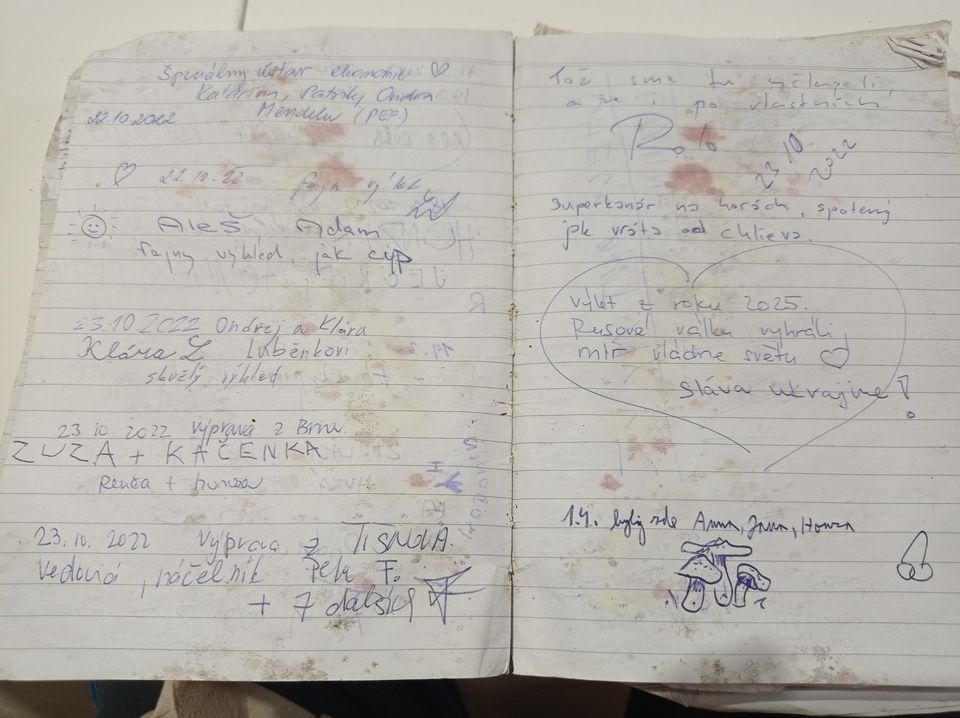 Speciálny ústav ekonomie
Katarína, Patrik, Ondra
22.10.2022 Mendelu (PEF)
22.10.22 fajn výlet
Aleš Adam
fajny výhled, jak cyp
23.10.2022 Ondrej a Klára
Klára L Luběnkovi
skvělý výhled
23 10 2022 výprava z Brna
ZUZA + KAČENKA
Renča + honza
23.10.2022 výprava z TIŠNOVA
Vedoucí, náčelník Petr F.
+ 7 dalších
Tož sme tu
a to i po vlastních.
Rolo 23 10. 2022
superkanár na horách, spotený
jak vráta od chlieva.
výlet z roku 2025.
Rusové válku vyhráli,
mír vládne světu
sláva ukrajine!
1.4. byly zde Anna, Jana, Honza